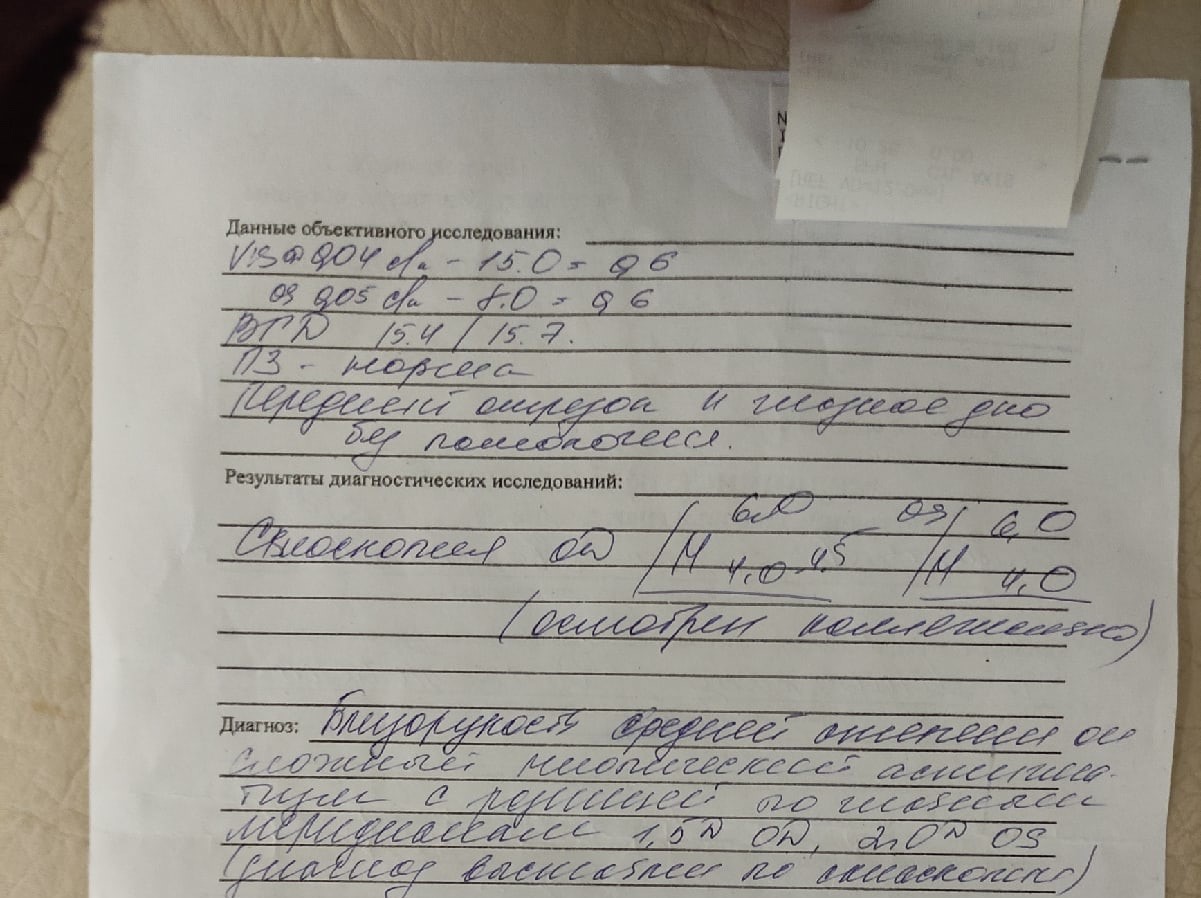 Данные объективного исследования:
Vis OD 0,04 сф - 15.0 = 0,6
OS 0,05 сф - 8.0 = 0,6
ВГД 15.4 / 15.7.
ПЗ - норма
Передний отрезок и глазное дно
без патологии.
Результаты диагностических исследований:
6,0 OS 6,0
Скиаскопия OD М 4,0-4,5 М 4,0
(осмотрен коллегиально)
Диагноз: Близорукость средней степени ou
Сложный миопический астигма-
тизм с разницей по главным
меридианам 1,5D OD, 2,0D OS
(диагноз выставлен по скиаскопии)